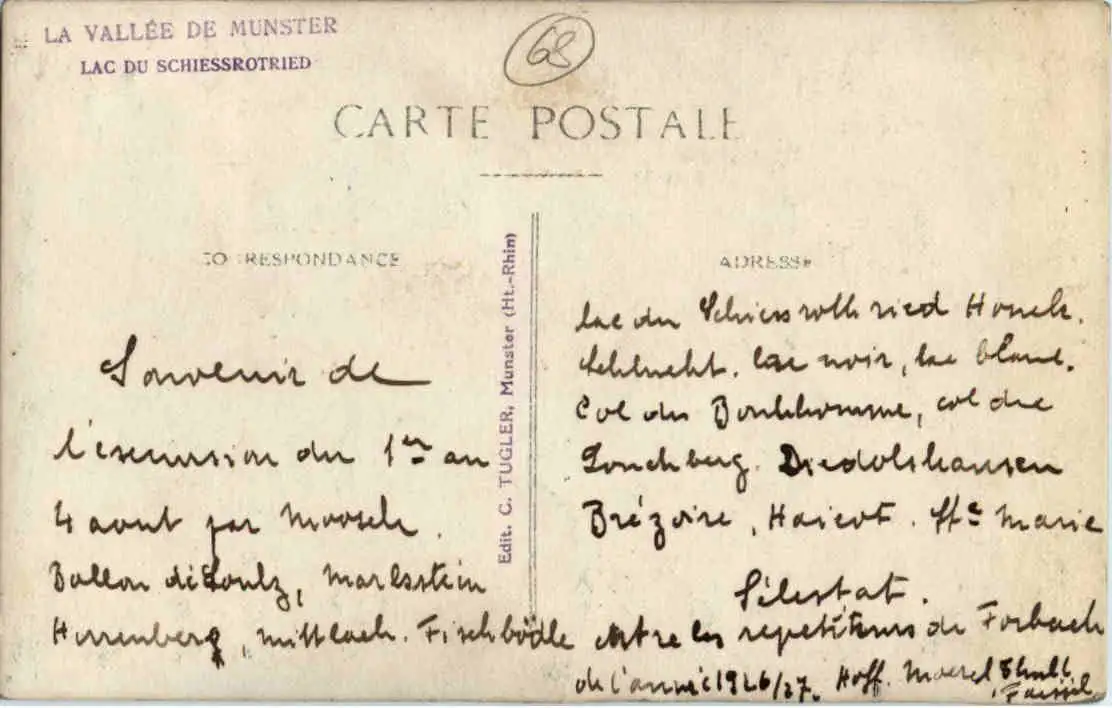 LA VALLÉE DE MUNSTER
LAC DU SCHIESSROTRIED
68
CARTE POSTALE
CORRESPONDANCE
ADRESSE
Edit. C. TUGLER, Munster (Ht.-Rhin)
Souvenir de
l'excursion du 1er au
4 aout par Moosch.
Ballon de Soultz, Marksstein
Herrenberg, Mittlach. Fischbödle
lac du Schiessrothried Honeck.
Schlucht. lac noir, lac blanc.
Col du Bonhhomme, col du
Louchberg. Diedolshausen
Brézoire, Haicot. Ste Marie
Sélestat.
entre les repetiteurs de Forbach
de l'année 1926/27. Hoff.